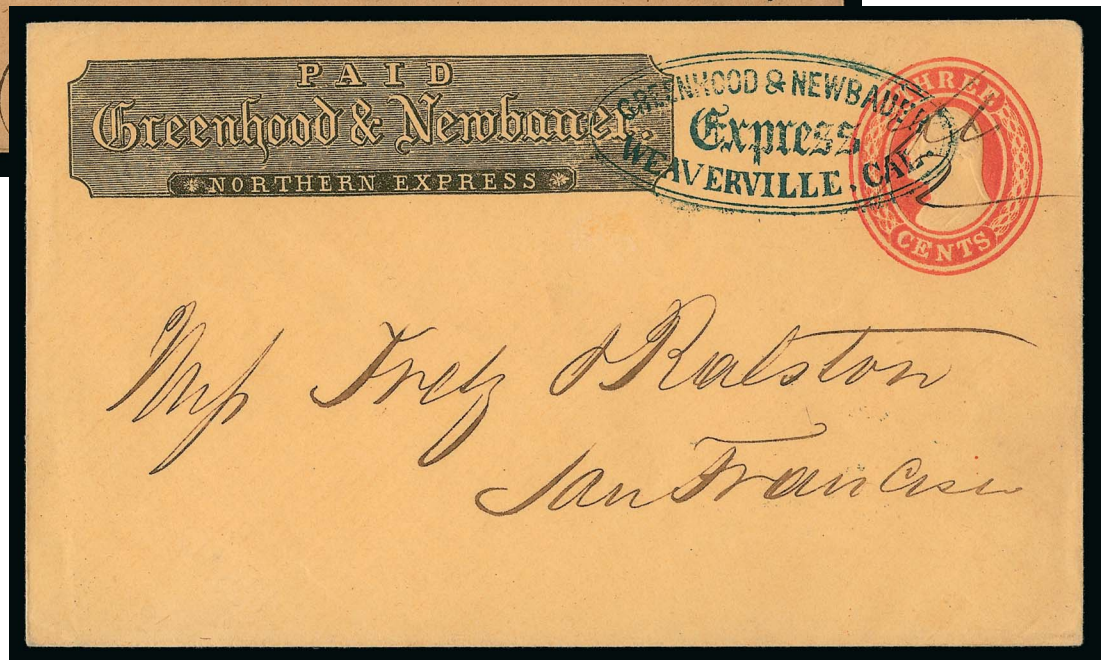 PAID
Greenhood & Newbauer
NORTHERN EXPRESS
GREENHOOD & NEWBAUER'S
Express
WEAVERVILLE, CAL.
THREE
CENTS
Mess Fretz & Ralston
San Francisco